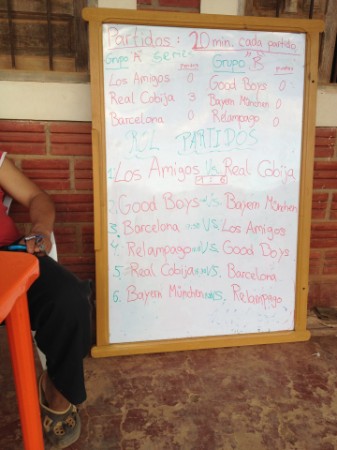 Partidos: 20 min. cada partido
Grupo "A" series puntos Grupo "B" puntos
Los Amigos 0 Good Boys 0
Real Cobija 3 Bayern München 0
Barcelona 0 Relampago 0
ROL PARTIDOS
1. Los Amigos Vs. Real Cobija
2. Good Boys Vs. Bayern München
3. Barcelona Vs. Los Amigos
4. Relampago Vs. Good Boys
5. Real Cobija Vs. Barcelona.
6. Bayern München Vs. Relampago